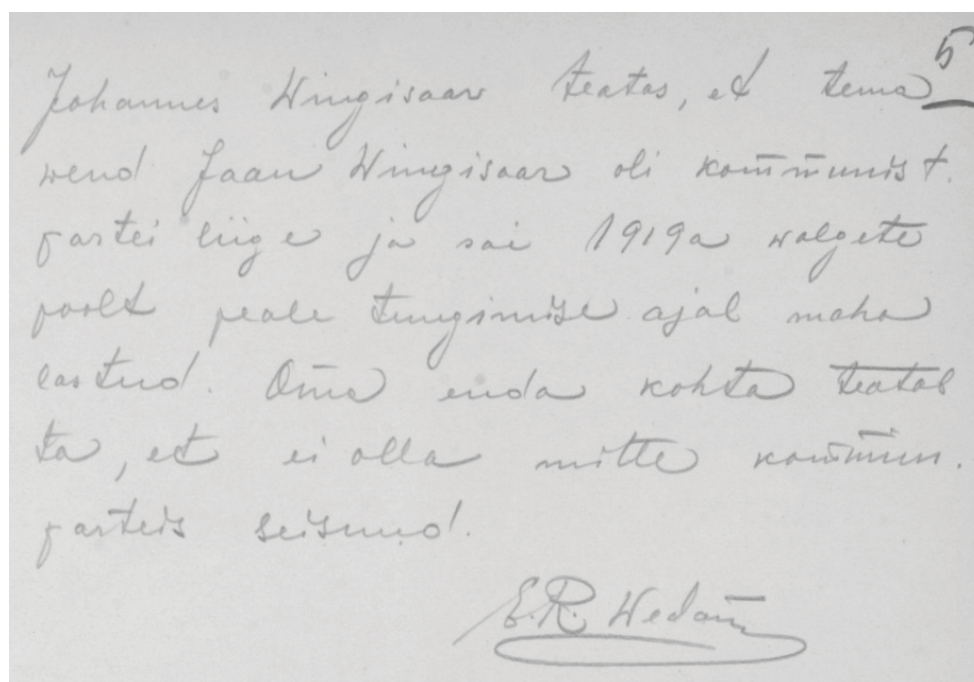 5
Johannes Wingisaar teatas, et tema
wend Jaan Wingisaar oli kommunist.
partei liige ja sai 1919a walgete
poolt peale tungimise ajal maha
lastud. Oma enda kohta teatab
ta, et ei olla mitte kommun.
parteis seisnud.
E.R. Wedam